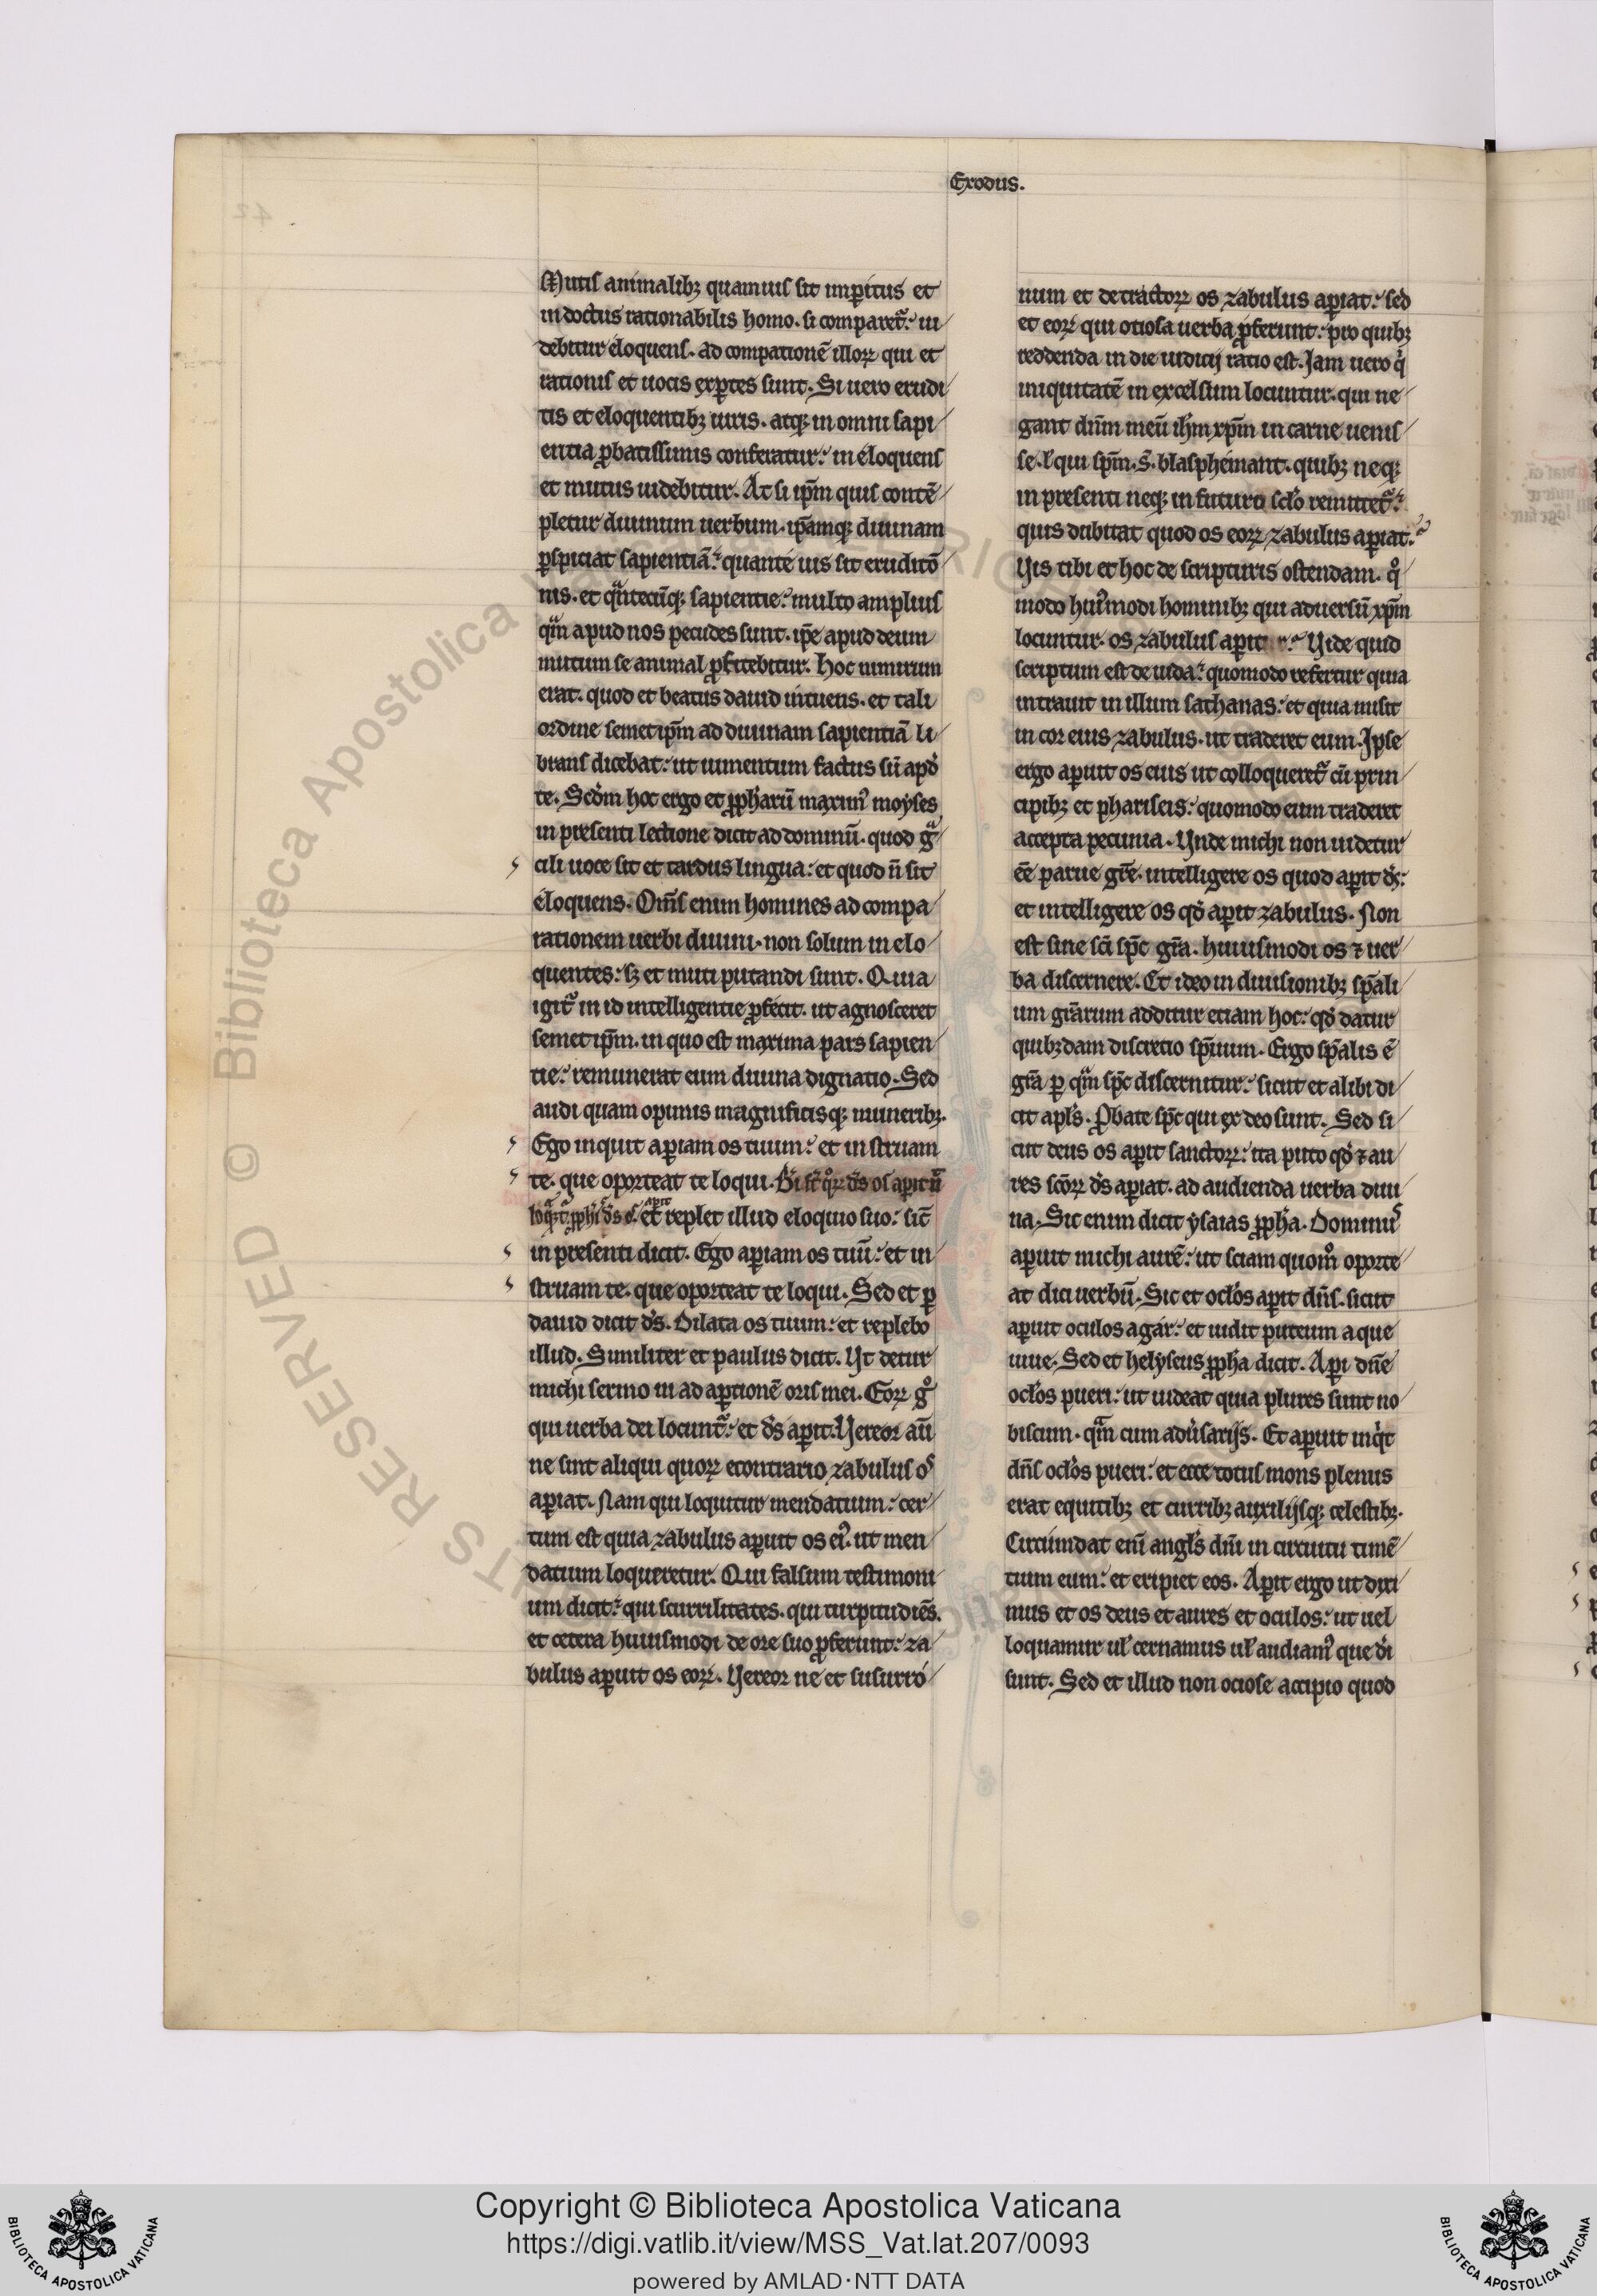 Exodus.
Mutis animalibꝫ quamuis sit imꝑitus et
in doctus rationabilis homo. si comparet᷑: ui
debitur eloquens. ad compationē illoꝝ qui et
rationis et uocis exꝑtes sunt. Si uero erudi
tis et eloquentibꝫ uiris. atqꝫ in omni sapi
entia ꝓbatissimis conferatur: ineloquens
et mutus uidebitur. At si ip̄m quis contē
pletur diuinum uerbum. ip̄amqꝫ diuinam
ꝑspiciat sapientiā: quante uis sit eruditō
nis. et qͣntecūqꝫ sapientie: multo amplius
qͣm apud nos pecudes sunt. ip̄e apud deum
mutum se animal ꝓfitebitur. Hoc nimirum
erat. quod et beatus dauid intuens. et tali
ordine semetip̄m ad diuinam sapientiā li
brans dicebat: ut iumentum factus sū apđ
te. Scđm hoc ergo et ꝓph̄arū maxim᷒ moyses
in presenti lectione dicit ad dominū. quod gͣ
cili uoce sit et tardus lingua: et quod n̄ sit
eloquens. Om̄s enim homines ad compa
rationem uerbi diuini. non solum inelo
quentes: sꝫ et muti putandi sunt. Quia
igit᷑ in id intelligentie ꝓfecit. ut agnosceret
semet ip̄m. in quo est maxima pars sapien
tie: remunerat eum diuina dignatio. Sed
audi quam opimis magnificisqꝫ muneribꝫ.
Ego inquit aꝑiam os tuum: et instruam
te. que oporteat te loqui. Bī st̄ qͦꝝ đs os aꝑit ū
et replet illud eloquio suo: sic̄
in presenti dicit. Ego aꝑiam os tuū: et in
struam te. que oporteat te loqui. Sed et ꝑ
dauid dicit đs. Dilata os tuum: et replebo
illud. Similiter et paulus dicit. Ut detur
michi sermo in adaꝑtionē oris mei. Eoꝝ gͦ
qui uerba dei locunt᷑: et đs aꝑit. Uereor aū
ne sint aliqui quoꝝ econtrario zabulus os
aꝑiat. Nam qui loquitur mendatium: cer
tum est quia zabulus aꝑuit os ei᷒ ut men
datium loqueretur. Qui falsum testimoni
um dicit: qui scurrilitates. qui turpitudiēs.
et cetera huiusmodi de ore suo ꝓferunt: za
bulus aꝑuit os eoꝝ. Uereor ne et susurro
num et detractoꝝ os zabulus aꝑiat: sed
et eoꝝ qui otiosa uerba ꝓferunt: pro quibꝫ
reddenda in die iudicij ratio est. Jam uero qⁱ
iniquitatē in excelsum locuntur. qui ne
gant dn̄m meū ih̄m xp̄m in carne uenis
se. ł qui sp̄m. s̄. blasphemant. quibꝫ neqꝫ
in presenti neqꝫ in futuro sc̄lo remittet᷑:
quis dubitat quod os eoꝝ zabulus aꝑiat.
Uis tibi et hoc de scripturis ostendam. qͦ
modo hui᷒modi hominibꝫ qui aduersū xp̄m
locuntur. os zabulus aꝑit Uide quid
scriptum est de iuda: quomodo refertur quia
intrauit in illum sathanas: et quia misit
in cor eius zabulus. ut traderet eum. Ipse
ergo aꝑuit os eius ut colloqueret᷑ cū prin
cipibꝫ et phariseis: quomodo eum traderet
accepta pecunia. Unde michi non uidetur
eē parue gr̄e. intelligere os quod aꝑit đs:
et intelligere os qđ aꝑit zabulus. Non
est sine sc̄i sp̄c gr̄a. huiusmodi os ⁊ uer
ba discernere. Et ideo in diuisionibꝫ sp̄ali
um gr̄arum additur etiam hoc: qđ datur
quibꝫdam discretio sp̄iuum. Ergo sp̄alis ē
gr̄a ꝑ qͣm sp̄c discernitur: sicut et alibi di
cit apl̄s. Ꝓbate sp̄c qui ex deo sunt. Sed si
cut deus os aꝑit sanctoꝝ: ita puto qđ ⁊ au
res sc̄oꝝ đs aꝑiat. ad audienda uerba diui
na. Sic enim dicit ysaias ꝓph̄a. Dominus
aꝑuit michi aurē: ut sciam quom̊ oporte
at dici uerbū. Sic et ocl̄os aꝑit dn̄s. sicut
aꝑuit oculos agar: et uidit puteum aque
uiue. Sed et helyseus ꝓph̄a dicit. Aꝑi dn̄e
ocl̄os pueri: ut uideat quia plures sunt no
biscum. qͣm cum adu᷒sarijs. Et aꝑuit inqⁱt
dn̄s ocl̄os pueri: et ecce totus mons plenus
erat equitibꝫ et curribꝫ auxilijsqꝫ celestibꝫ.
Circūmdat eni᷒ angl̄s dn̄i in circuitu timē
tium eum: et eripiet eos. Aꝑit ergo ut dixi
mus et os deus et aures et oculos: ut uel
loquamur ul̄ cernamus ul̄ audiam᷒ que đi
sunt. Sed et illud non ociose accipio quod
© Biblioteca Apostolica Vaticana
RIGHTS RESERVED
Copyright © Biblioteca Apostolica Vaticana
https://digi.vatlib.it/view/MSS_Vat.lat.207/0093
powered by AMLAD·NTT DATA
BIBLIOTECA APOSTOLICA VATICANA
BIBLIOTECA APOSTOLICA VATICANA